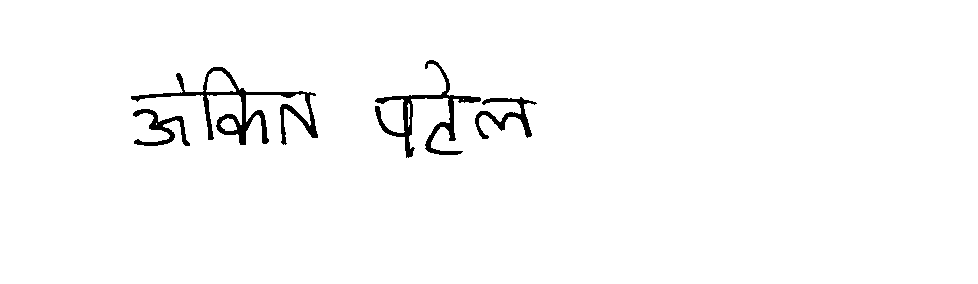 अंकित पटेल